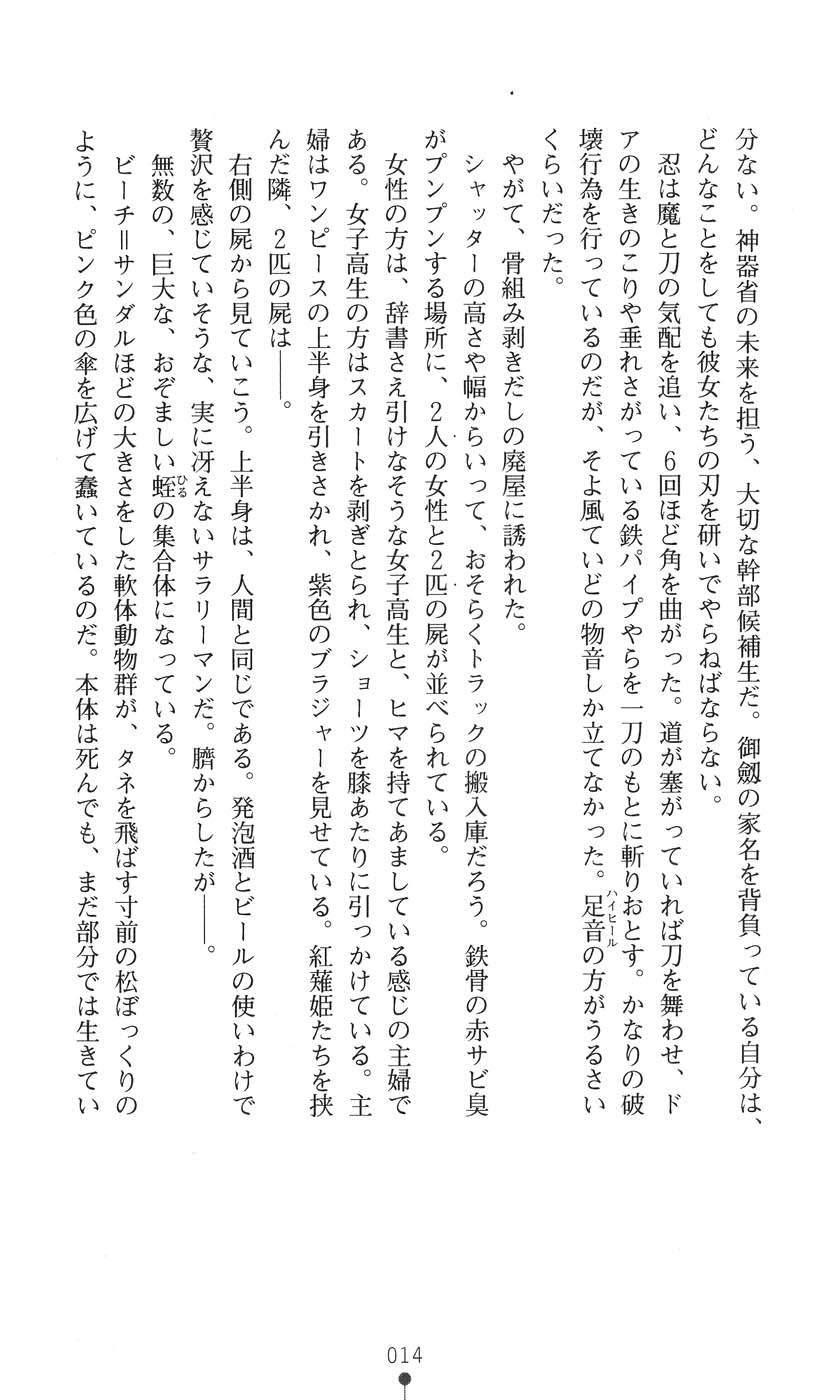 分ない。神器省の未来を担う、大切な幹部候補生だ。御劔の家名を背負っている自分は、
どんなことをしても彼女たちの刃を研いでやらねばならない。
忍は魔と刀の気配を追い、6回ほど角を曲がった。道が塞がっていれば刀を舞わせ、ド
アの生きのこりや垂れさがっている鉄パイプやらを一刀のもとに斬りおとす。かなりの破
壊行為を行っているのだが、そよ風ていどの物音しか立てなかった。足音の方がうるさい
ハイヒール
くらいだった。
やがて、骨組み剥きだしの廃屋に誘われた。
シャッターの高さや幅からいって、おそらくトラックの搬入庫だろう。鉄骨の赤サビ臭
がプンプンする場所に、2人の女性と2匹の屍が並べられている。
女性の方は、辞書さえ引けなそうな女子高生と、ヒマを持てあましている感じの主婦で
ある。女子高生の方はスカートを剥ぎとられ、ショーツを膝あたりに引っかけている。主
婦はワンピースの上半身を引きさかれ、紫色のブラジャーを見せている。紅薙姫たちを挟
んだ隣、2匹の屍は――。
右側の屍から見ていこう。上半身は、人間と同じである。発泡酒とビールの使いわけで
贅沢を感じていそうな、実に冴えないサラリーマンだ。臍からしたが――。
無数の、巨大な、おぞましい蛭の集合体になっている。
ひる
ビーチ=サンダルほどの大きさをした軟体動物群が、タネを飛ばす寸前の松ぼっくりの
ように、ピンク色の傘を広げて蠢いているのだ。本体は死んでも、まだ部分では生きてい
014